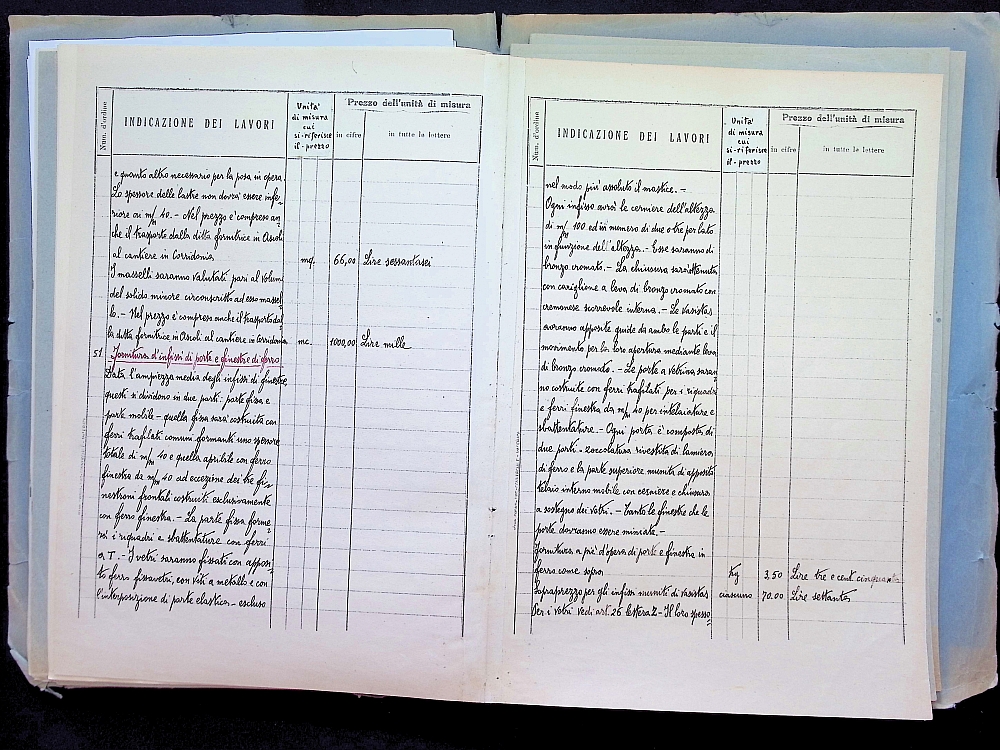 Num. d'ordine
INDICAZIONE DEI LAVORI
Unità di misura cui si-riferisce il-prezzo
Prezzo dell'unità di misura
in cifre
in tutte la lettere
e quanto altro necessario per la posa in opera.
Lo spessore delle lastre non dovrà essere infe-
riore ai m/m 40. - Nel prezzo è compreso an-
che il trasporto dalla ditta fornitrice in Ascoli
al cantiere in Corridonia mq. 66,00 Lire sessantasei
I masselli saranno valutati pari al volum.
del solido minore circoscritto ad esso massel
lo. - Nel prezzo è compreso anche il trasporto dal
la ditta fornitrice in Ascoli al cantiere in Corridonia mc. 1000,00 Lire mille
51 Fornitura d'infissi di porte e finestre di ferro
Data l'ampiezza media degli infissi di finestre,
questi si dividono in due parti: parte fissa e
parte mobile - quella fissa sarà costruita con
ferri trafilati comuni formanti uno spessore
totale di m/m 40 e quella apribile con ferro
finestra da m/m 40 ad eccezione dei tre fi-
nestroni frontali costruiti esclusivamente
con ferro finestra. - La parte fissa forme-
rà i riquadri e sbattentature con ferri
a T. - I vetri saranno fissati con apposi-
to ferro fissavetri, con viti a metallo e con
l'interposizione di parte elastica - escluso
Num. d'ordine
INDICAZIONE DEI LAVORI
Unità di misura cui si-riferisce il-prezzo
Prezzo dell'unità di misura
in cifre
in tutte la lettere
nel modo più assoluto il mastice. -
Ogni infisso avrà le cerniere dell'altezza
di m/m 100 ed in numero di due o tre per lato
in funzione dell'altezza. - Esse saranno di
bronzo cromato. - La chiusura sarà ottenuta
con cariglione a leva di bronzo cromato con
cremonese scorrevole interna. - Le vasistas
avranno apposite guide da ambo le parti e il
movimento per la loro apertura mediante leva
di bronzo cromato. - Le porte a vetrina saran
no costruite con ferri trafilati per i riquadri
e ferri finestra da m/m 40 per intelaiature e
sbattentature. - Ogni porta è composta di
due parti - zoccolatura rivestita di lamiera
di ferro e la parte superiore munita di apposito
telaio interno mobile con cerniere e chiusura
a sostegno dei vetri. - Tanto le finestre che le
porte dovranno essere miniate.
Fornitura a piè d'opera di porte e finestra in
ferro come sopra Kg 3,50 Lire tre e cent. cinquanta
Soprapprezzo per gli infissi muniti di vasistas ciascuno 70.00 Lire settanta
Per i vetri vedi art. 26 lettera Z - Il loro spesso-